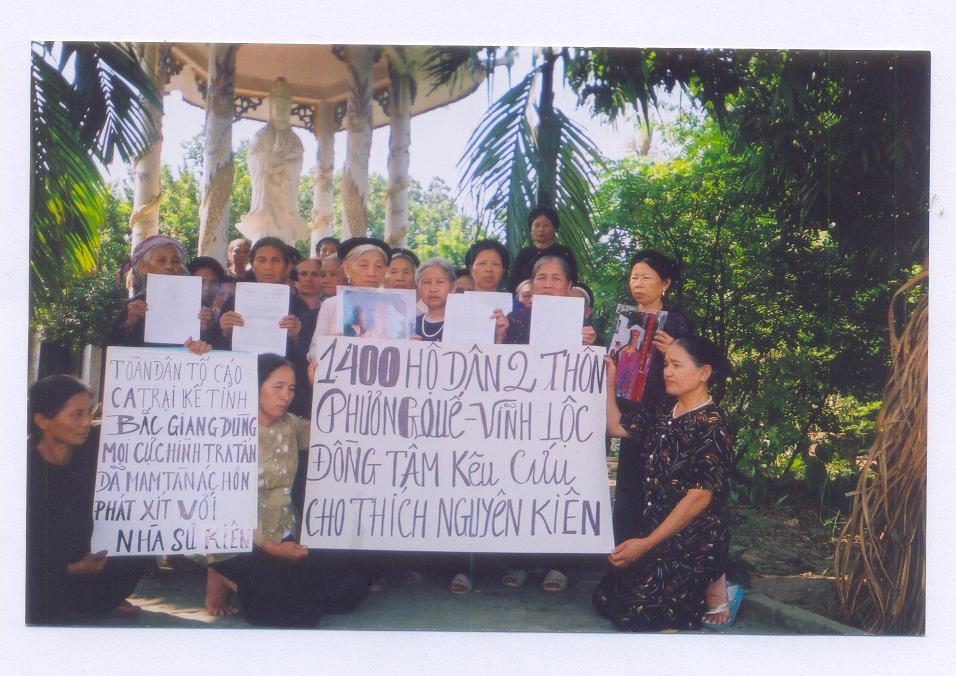 TOÀN DÂN TỐ CÁO
CA TRẠI KẾ TỈNH
BẮC GIANG DÙNG
MỌI CỰC HÌNH TRA TẤN
DÃ MAM TÀN ÁC HƠN
PHÁT XÍT VỚI
NHÀ SƯ KIÊN
1400 HỘ DÂN 2 THÔN
PHƯƠNG QUẾ - VĨNH LỘC
ĐỒNG TÂM KÊU CỨU
CHO THÍCH NGUYÊN KIÊN